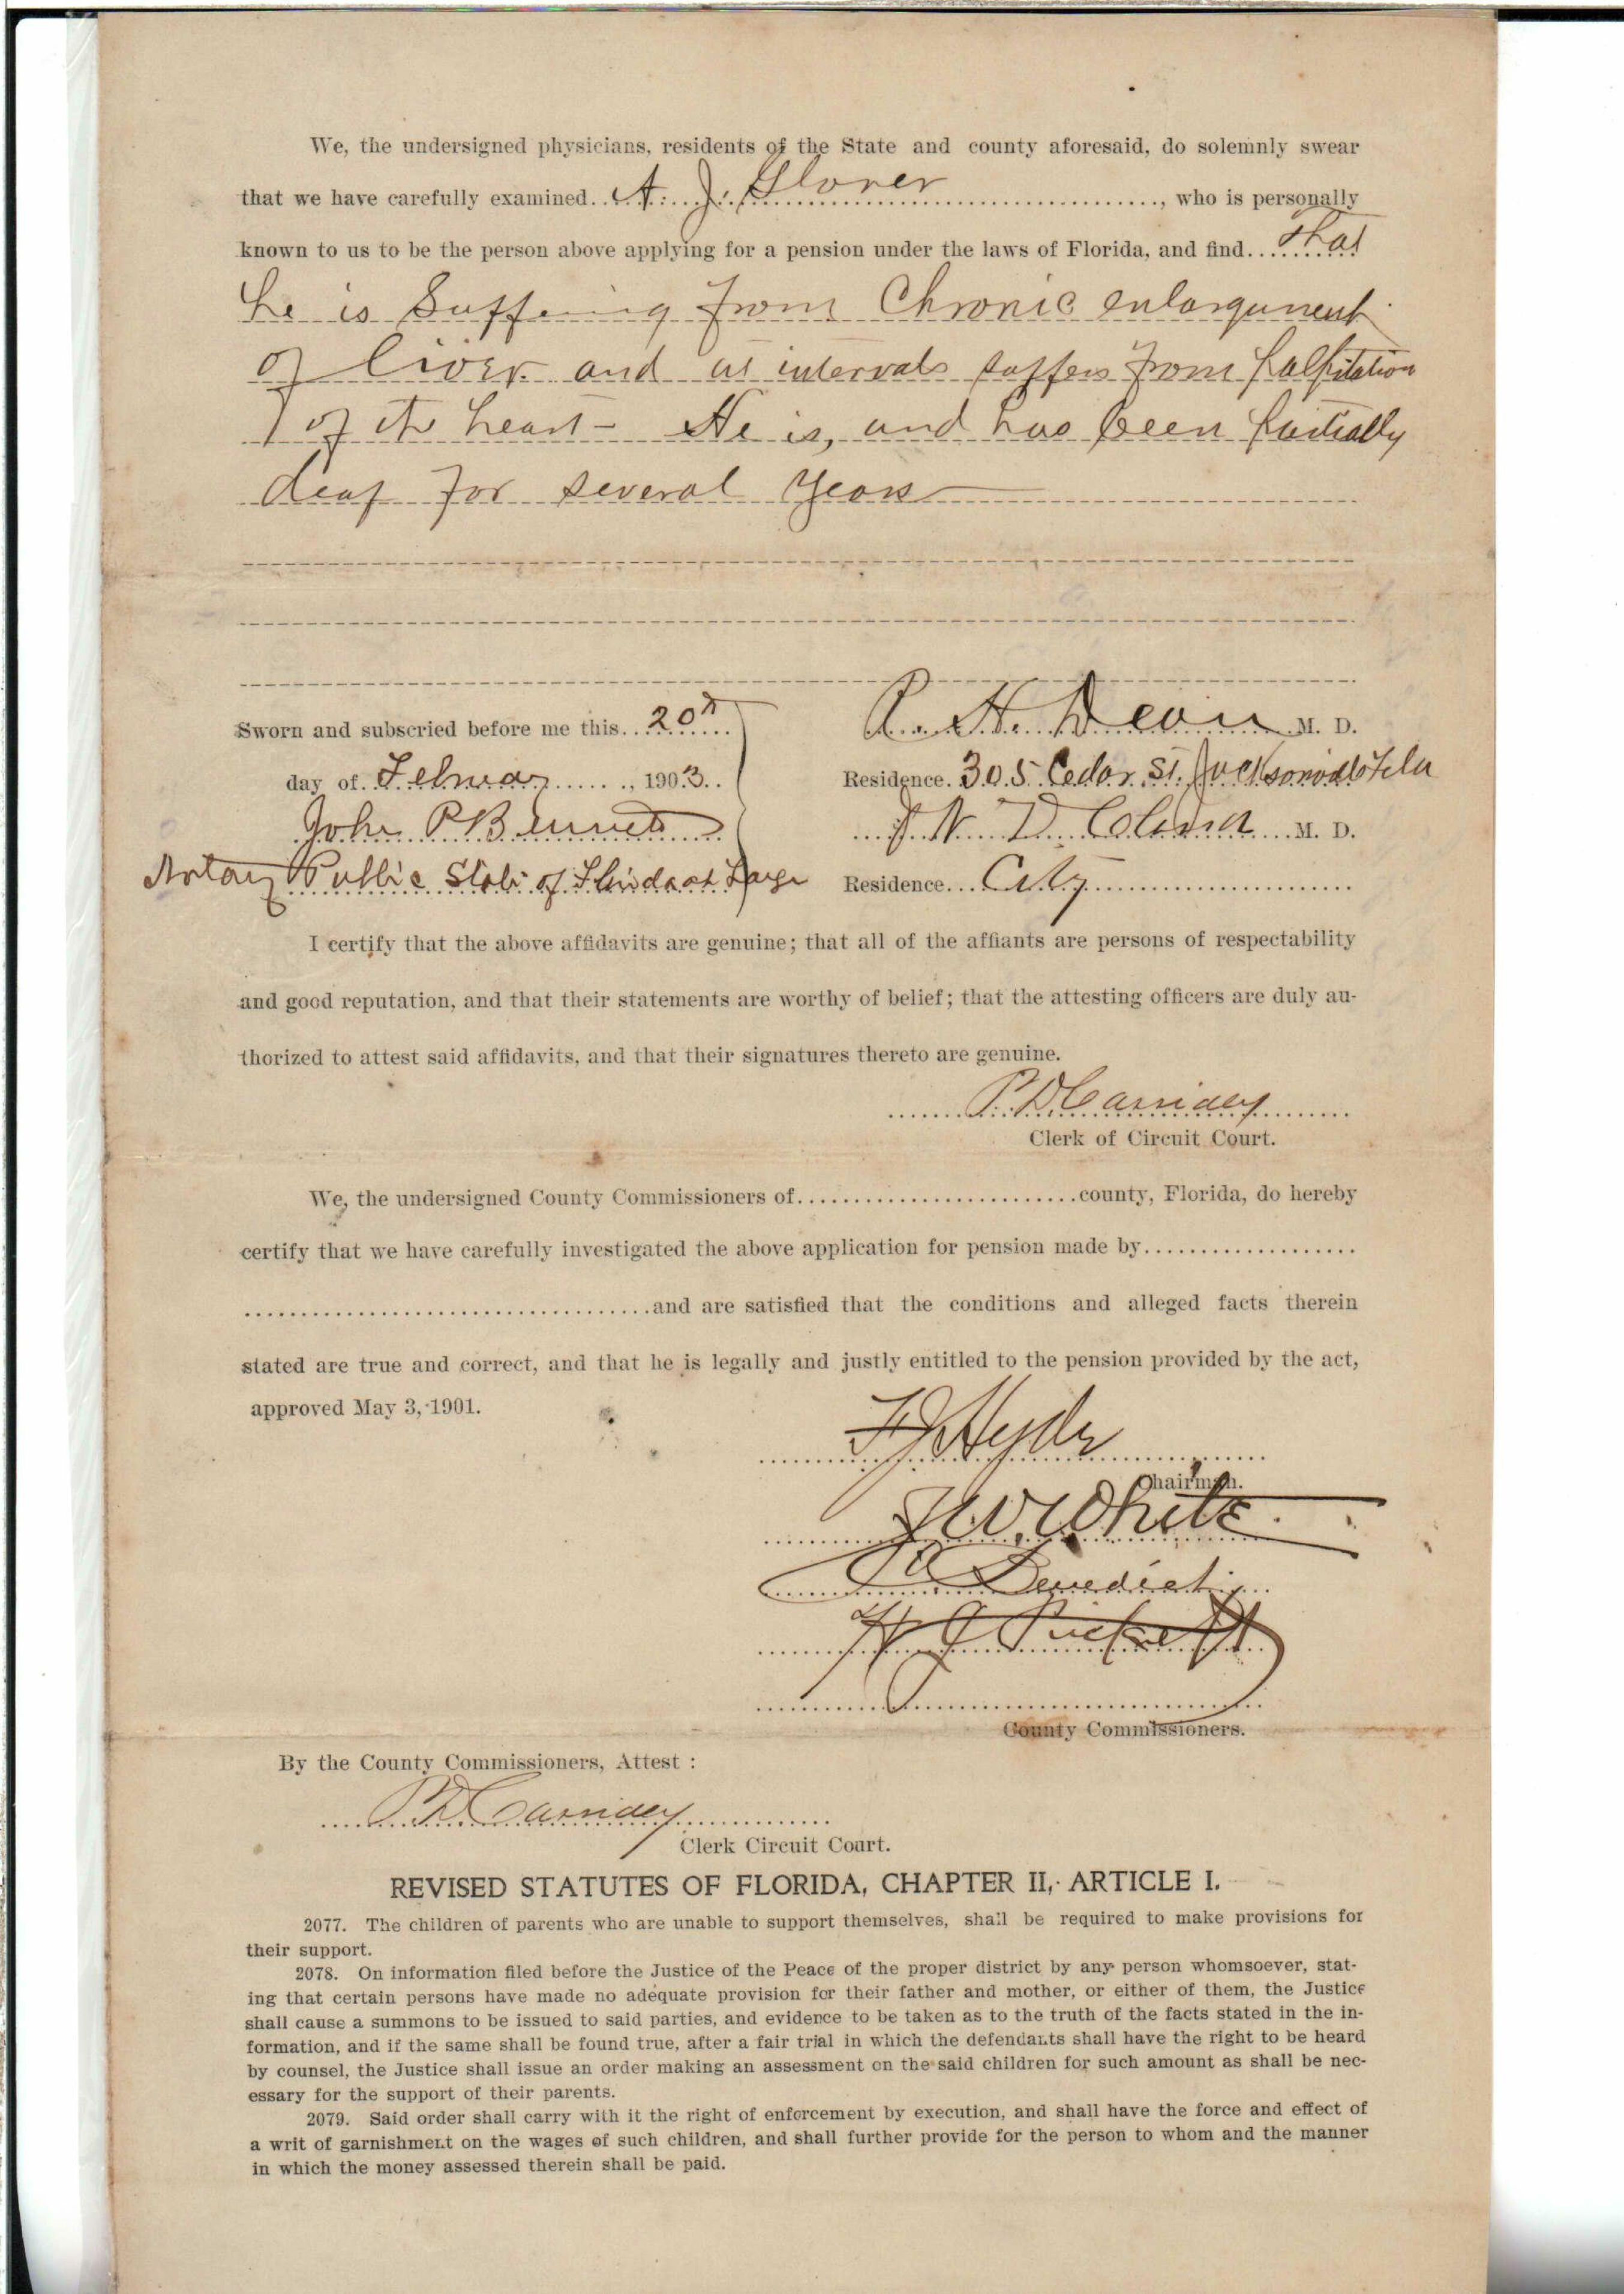 We, the undersigned physicians, residents of the State and county aforesaid, do solemnly swear
that we have carefully examined A. J. Glover, who is personally
known to us to be the person above applying for a pension under the laws of Florida, and find that
he is Suffering from Chronic enlargement
of liver and at intervals suffers from palpitation
of the heart - He is, and has been partially
deaf for several years
Sworn and subscried before me this 20th
day of February, 1903.
John P Bennett
Notary Public State of Florida at Large
R. H. Dean M. D.
Residence. 305 Cedar St. Jacksonville Fla
M. D.
Residence City
I certify that the above affidavits are genuine; that all of the affiants are persons of respectability
and good reputation, and that their statements are worthy of belief; that the attesting officers are duly au-
thorized to attest said affidavits, and that their signatures thereto are genuine.
P. D. Cassidey
Clerk of Circuit Court.
We, the undersigned County Commissioners of county, Florida, do hereby
certify that we have carefully investigated the above application for pension made by
and are satisfied that the conditions and alleged facts therein
stated are true and correct, and that he is legally and justly entitled to the pension provided by the act,
approved May 3, 1901.
F J Hyde
Chairman.
J W White
Benedict
W J Pickett
County Commissioners.
By the County Commissioners, Attest :
P. D. Cassidey
Clerk Circuit Court.
REVISED STATUTES OF FLORIDA, CHAPTER II, ARTICLE I.
2077. The children of parents who are unable to support themselves, shall be required to make provisions for
their support.
2078. On information filed before the Justice of the Peace of the proper district by any person whomsoever, stat-
ing that certain persons have made no adequate provision for their father and mother, or either of them, the Justice
shall cause a summons to be issued to said parties, and evidence to be taken as to the truth of the facts stated in the in-
formation, and if the same shall be found true, after a fair trial in which the defendants shall have the right to be heard
by counsel, the Justice shall issue an order making an assessment on the said children for such amount as shall be nec-
essary for the support of their parents.
2079. Said order shall carry with it the right of enforcement by execution, and shall have the force and effect of
a writ of garnishment on the wages of such children, and shall further provide for the person to whom and the manner
in which the money assessed therein shall be paid.